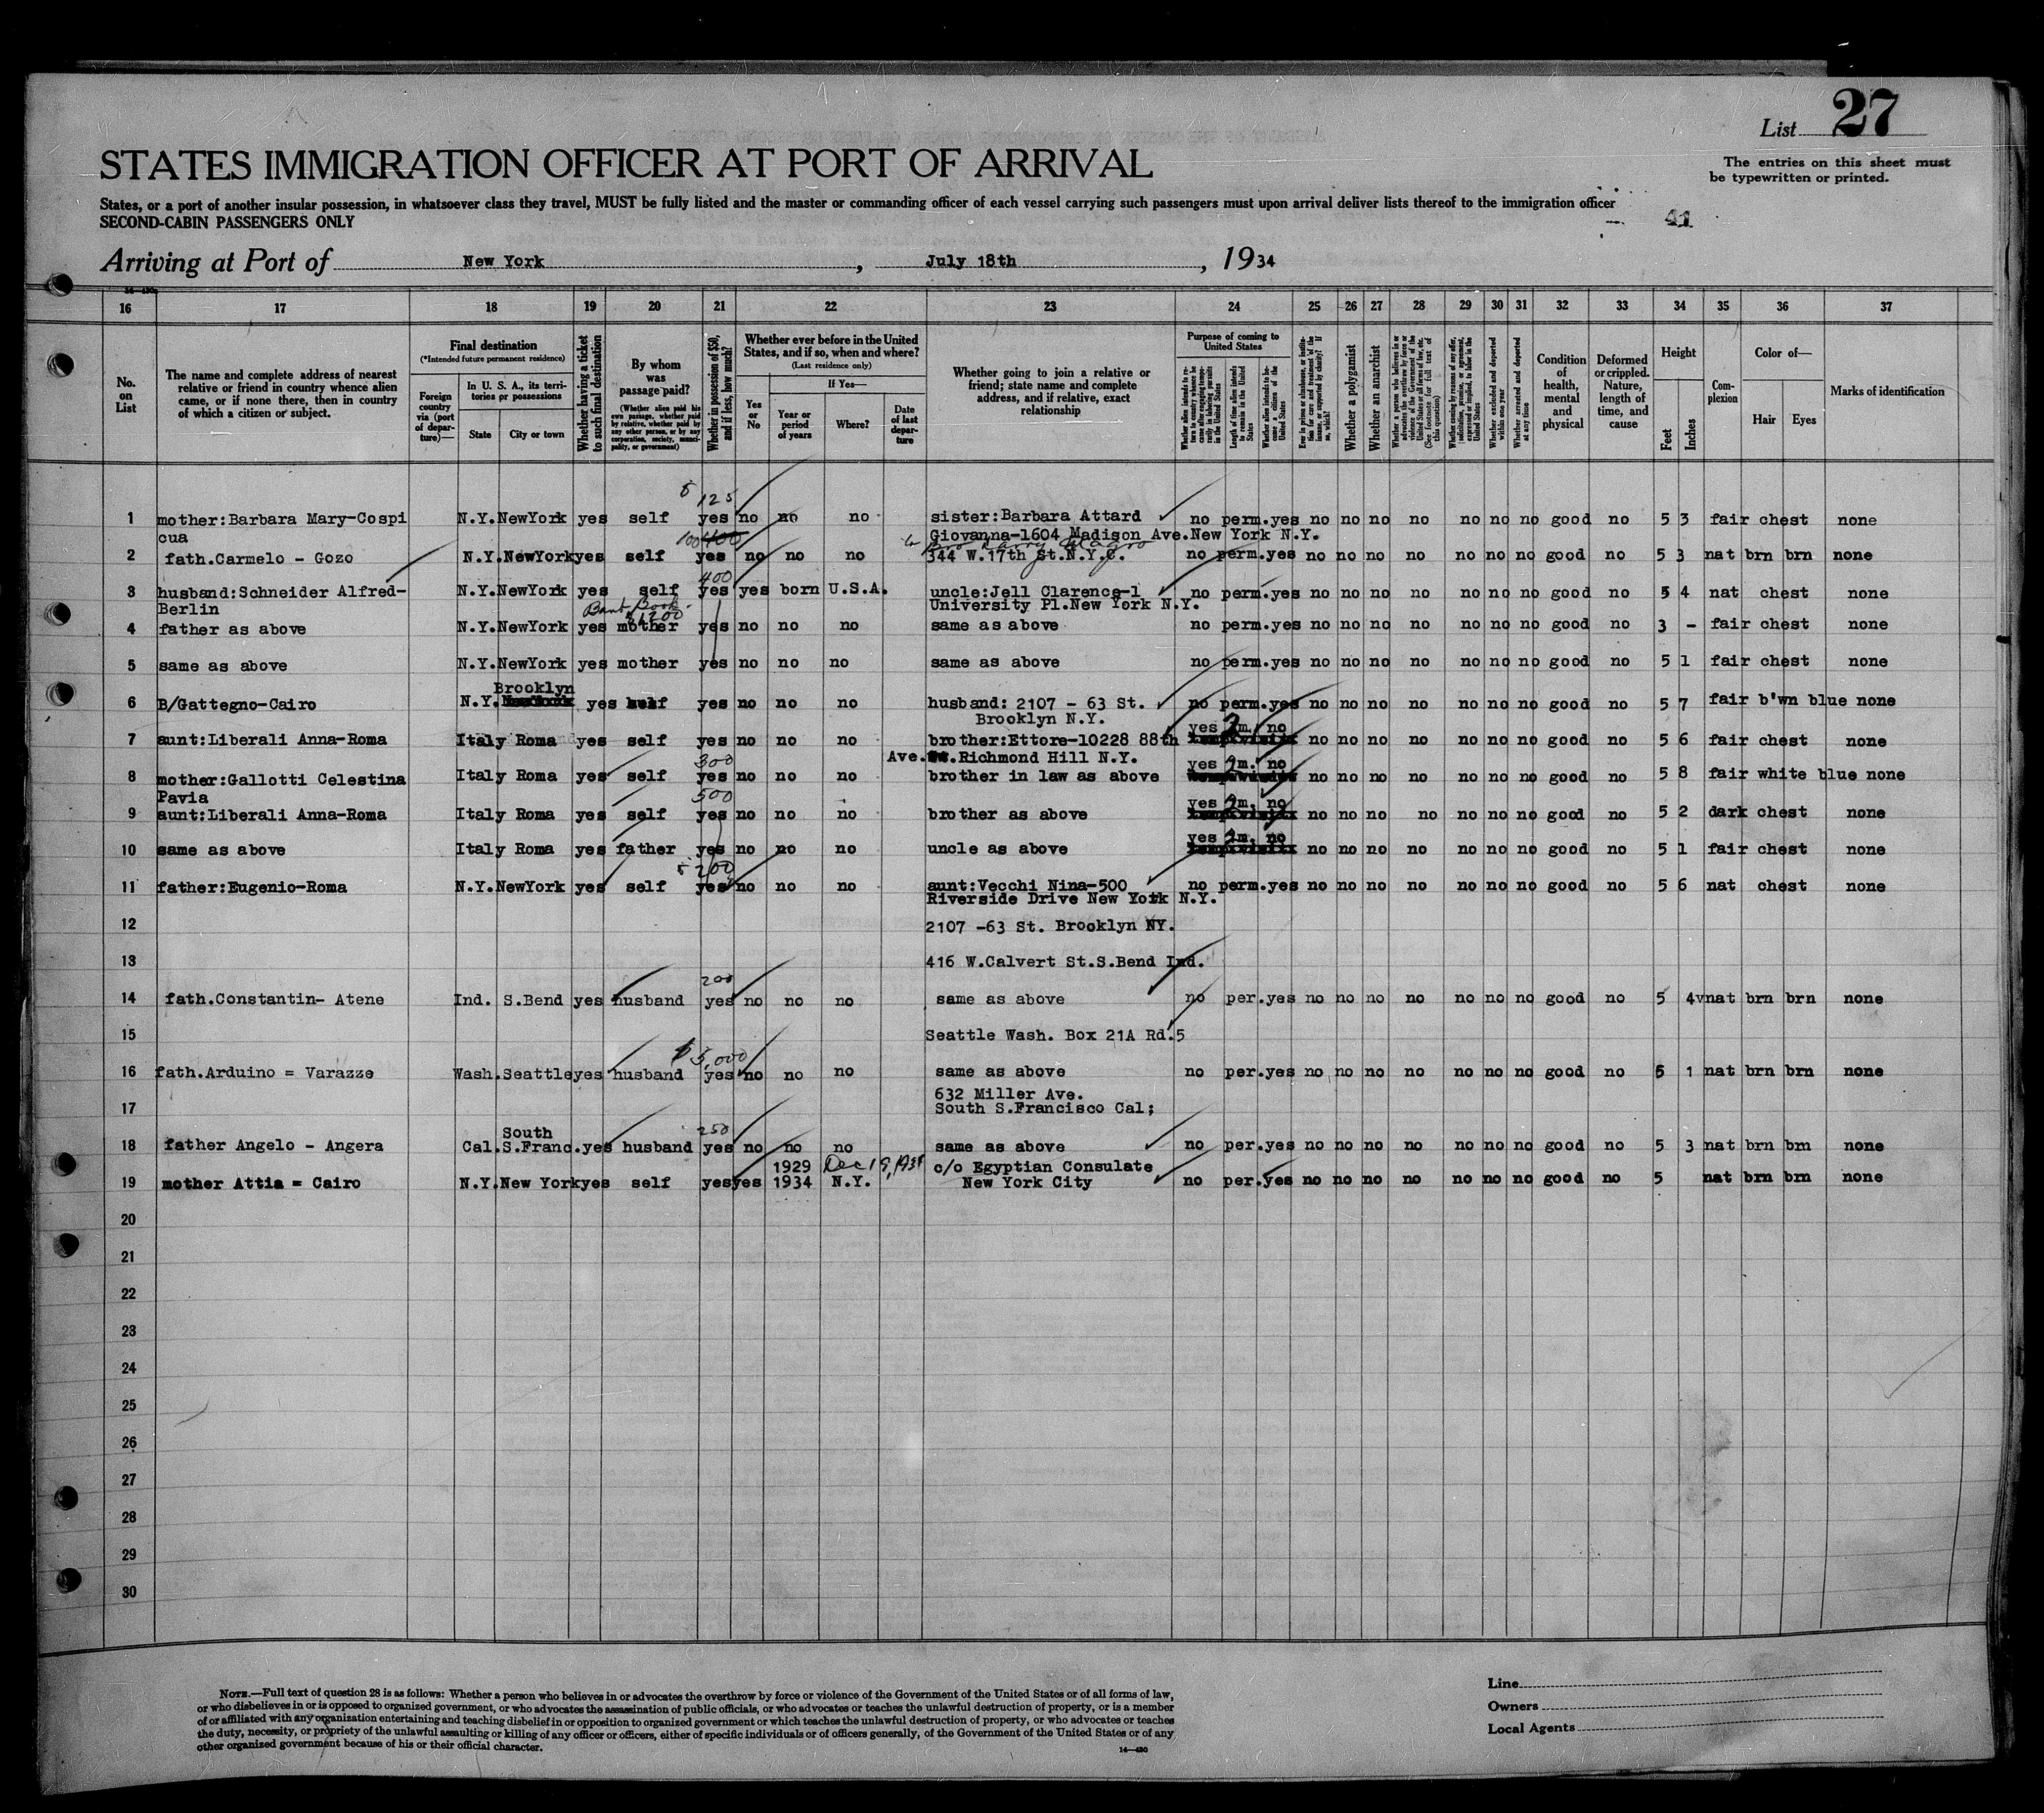 List 27
The entries on this sheet must
be typewritten or printed.
STATES IMMIGRATION OFFICER AT PORT OF ARRIVAL
States, or a port of another insular possession, in whatsoever class they travel, MUST be fully listed and the master or commanding officer of each vessel carrying such passengers must upon arrival deliver lists thereof to the immigration officer
SECOND-CABIN PASSENGERS ONLY
41
Arriving at Port of New York, July 18th, 1934
16 17 18 19 20 21 22 23 24 25 26 27 28 29 30 31 32 33 34 35 36 37
No. on List
The name and complete address of nearest relative or friend in country whence alien came, or if none there, then in country of which a citizen or subject.
Final destination
(*Intended future permanent residence)
Foreign country via (port of departure)—
In U. S. A., its territories or possessions
State
City or town
Whether having a ticket to such final destination
By whom was passage paid?
(Whether alien paid his own passage, whether paid by relative, whether paid by any other person, or by any corporation, society, municipality, or government)
Whether in possession of $50, and if less, how much?
Whether ever before in the United States, and if so, when and where?
(Last residence only)
Yes or No
If Yes—
Year or period of years
Where?
Date of last departure
Whether going to join a relative or friend; state name and complete address, and if relative, exact relationship
Purpose of coming to United States
Whether alien intends to return to country whence he came after engaging temporarily in laboring pursuits in the United States
Length of time alien intends to remain in the United States
Whether alien intends to become a citizen of the United States
Ever in prison or almshouse, or institution for care and treatment of the insane, or supported by charity? If so, which?
Whether a polygamist
Whether an anarchist
Whether a person who believes in or advocates the overthrow by force or violence of the Government of the United States or all forms of law, etc. (See footnote for full text of this question)
Whether coming by reasons of any offer, solicitation, promise, or agreement, expressed or implied, to labor in the United States
Whether excluded and deported within one year
Whether arrested and deported at any time
Condition of health, mental and physical
Deformed or crippled. Nature, length of time, and cause
Height
Feet
Inches
Complexion
Color of—
Hair
Eyes
Marks of identification
$ 125
1 mother:Barbara Mary-Cospi N.Y. NewYork yes self yes no no no sister:Barbara Attard no perm. yes no no no no no no no good no 5 3 fair chest none
cua 100 400 Giovanna-1604 Madison Ave.New York N.Y.
2 fath.Carmelo - Gozo N.Y. NewYork yes self yes no no no 344 W.17th St.N.Y.C. no perm. yes no no no no no no no good no 5 3 nat brn brn none
400
3 husband:Schneider Alfred- N.Y. NewYork yes self yes yes born U.S.A. uncle:Jell Clarence-1 no perm. yes no no no no no no no good no 5 4 nat chest none
Berlin Bank Book $1200 University Pl.New York N.Y.
4 father as above N.Y. NewYork yes mother yes no no no same as above no perm. yes no no no no no no no good no 3 - fair chest none
5 same as above N.Y. NewYork yes mother yes no no no same as above no perm. yes no no no no no no no good no 5 1 fair chest none
Brooklyn
6 B/Gattegno-Cairo N.Y. yes self yes no no no husband: 2107 - 63 St. no perm. yes no no no no no no no good no 5 7 fair b'wn blue none
Brooklyn N.Y.
yes 2m. no
7 aunt:Liberali Anna-Roma Italy Roma yes self yes no no no brother:Ettore-10228 88th no no no no no no no good no 5 6 fair chest none
300 Ave. Richmond Hill N.Y. yes 2m. no
8 mother:Gallotti Celestina Italy Roma yes self yes no no no brother in law as above no no no no no no no good no 5 8 fair white blue none
Pavia 500 yes 2m. no
9 aunt:Liberali Anna-Roma Italy Roma yes self yes no no no brother as above no no no no no no no good no 5 2 dark chest none
yes 2m. no
10 same as above Italy Roma yes father yes no no no uncle as above no no no no no no no good no 5 1 fair chest none
$ 200
11 father:Eugenio-Roma N.Y. NewYork yes self yes no no no aunt:Vecchi Nina-500 no perm. yes no no no no no no no good no 5 6 nat chest none
Riverside Drive New York N.Y.
12 2107 -63 St. Brooklyn NY.
13 416 W.Calvert St.S.Bend Ind.
200
14 fath.Constantin- Atene Ind. S.Bend yes husband yes no no no same as above no per. yes no no no no no no no good no 5 4 nat brn brn none
15 Seattle Wash. Box 21A Rd.5
$ 5,000
16 fath.Arduino = Varazze Wash. Seattle yes husband yes no no no same as above no per. yes no no no no no no no good no 5 1 nat brn brn none
632 Miller Ave.
17 South S.Francisco Cal;
South 250
18 father Angelo - Angera Cal. S.Franc. yes husband yes no no no same as above no per. yes no no no no no no no good no 5 3 nat brn brn none
1929 Dec 19, 1931 c/o Egyptian Consulate
19 mother Attia = Cairo N.Y. New York yes self yes yes 1934 N.Y. New York City no per. yes no no no no no no no good no 5 nat brn brn none
20
21
22
23
24
25
26
27
28
29
30
NOTE.—Full text of question 28 is as follows: Whether a person who believes in or advocates the overthrow by force or violence of the Government of the United States or of all forms of law,
or who disbelieves in or is opposed to organized government, or who advocates the assassination of public officials, or who advocates or teaches the unlawful destruction of property, or is a member
of or affiliated with any organization entertaining and teaching disbelief in or opposition to organized government or which teaches the unlawful destruction of property, or who advocates or teaches
the duty, necessity, or propriety of the unlawful assaulting or killing of any officer or officers, either of specific individuals or of officers generally, of the Government of the United States or of any
other organized government because of his or their official character.
14—480
Line
Owners
Local Agents